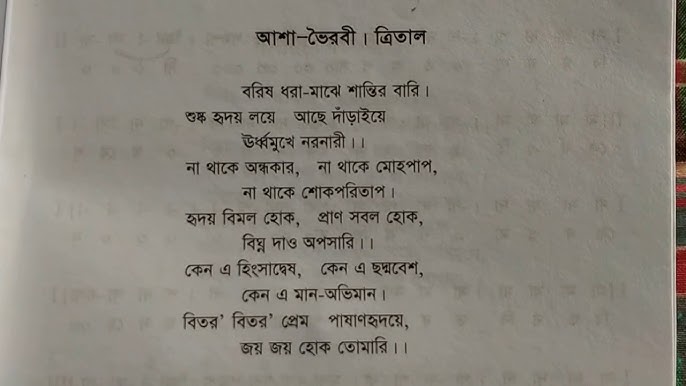 আশা-ভৈরবী। ত্রিতাল
বরিষ ধরা-মাঝে শান্তির বারি।
শুষ্ক হৃদয় লয়ে আছে দাঁড়াইয়ে
ঊর্ধ্বমুখে নরনারী।।
না থাকে অন্ধকার, না থাকে মোহপাপ,
না থাকে শোকপরিতাপ।
হৃদয় বিমল হোক, প্রাণ সবল হোক,
বিঘ্ন দাও অপসারি।।
কেন এ হিংসাদ্বেষ, কেন এ ছদ্মবেশ,
কেন এ মান-অভিমান।
বিতর' বিতর' প্রেম পাষাণহৃদয়ে,
জয় জয় হোক তোমারি।।